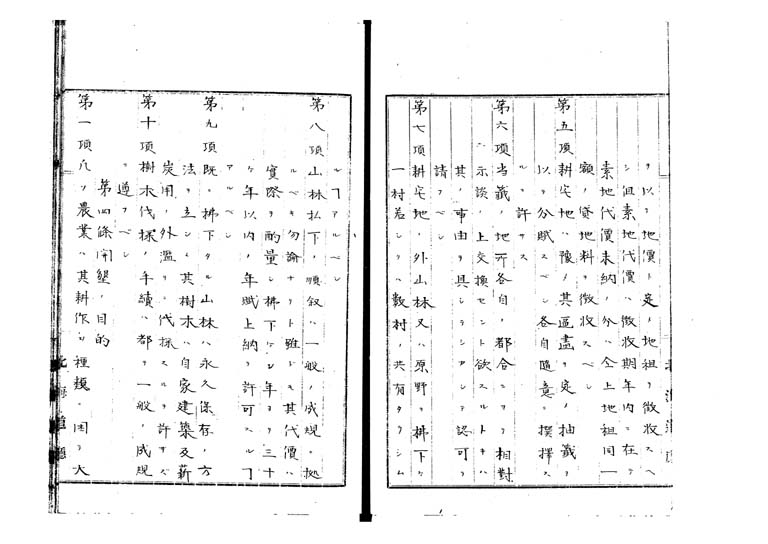 ヲ以テ地價ト定ノ地租ヲ徴收スヘ
シ但素地代價ハ徴收期年内ニ在テ
素地代價未納ノ外ハ全上地租同一
額ノ貸地料ヲ徴收スベシ
第五項耕宅地ハ豫ノ其區畫ヲ定ノ抽籤ヲ
以テ分賦スベシ各自隨意ニ撰擇ス
ルヲ許サス
第六項当籤ノ地所各自ノ都合ニヨリ相對
示談ノ上交換セント欲スルトキハ
其ノ事由ヲ具シテシアシテ認可ヲ
請フベシ
第七項耕宅地ノ外山林又ハ原野ヲ拂下ケ
一村若シクハ數村ノ共有タラシム
ルヿアルベシ
第八項山林払下ノ順叙ハ一般ノ成規ニ拠
ルベキ勿論ナリト雖トモ其代價ハ
實際ヲ酌量シ拂下ケシ年ヨリ三十
ケ年以内ノ年賦上納ヲ許可スルヿ
アルベシ
第九項既ニ拂下タル山林ハ永久保存ノ方
法ヲ立シメ其樹木ハ自家建築及薪
炭用ノ外濫リニ伐採スルヲ許サス
第十項樹木伐採ノ手續ハ都テ一般ノ成規
ニ遵フベシ
第四條開墾ノ目的
第一項凡ソ農業ハ其耕作ノ種類ニ因リ大
北海道廳